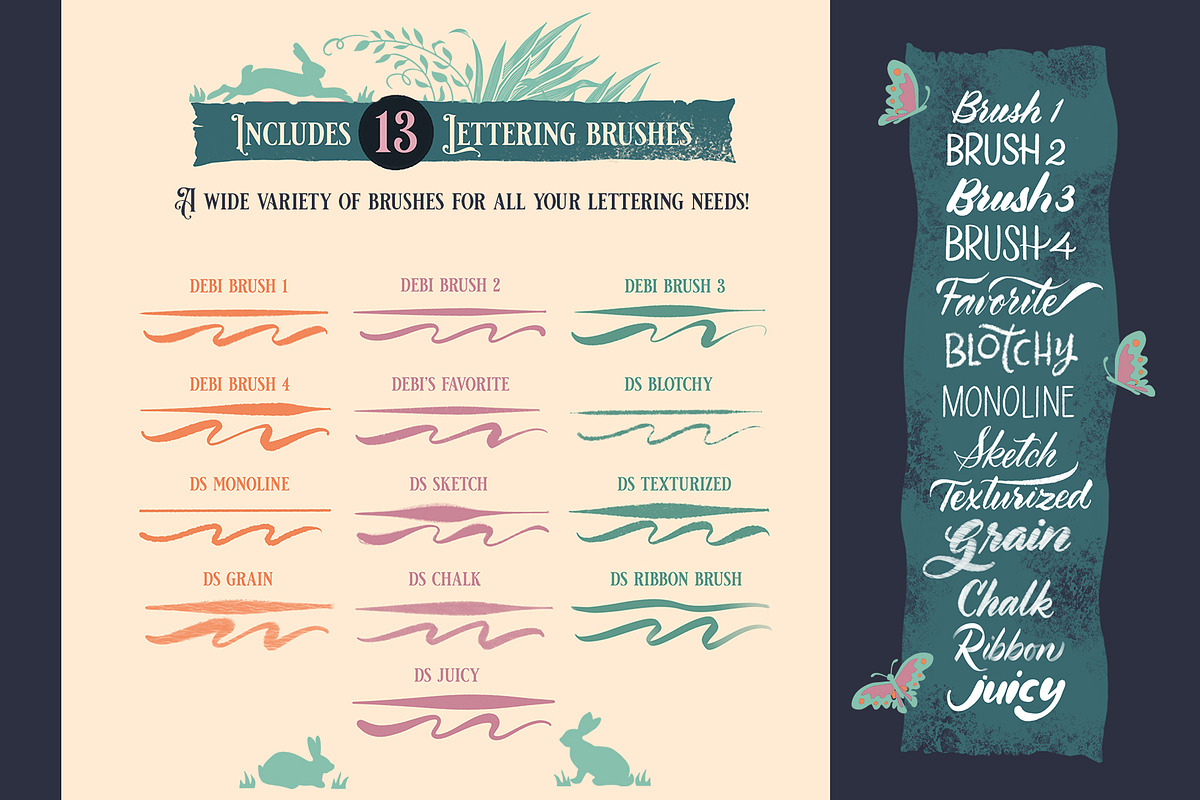 INCLUDES 13 LETTERING BRUSHES
A WIDE VARIETY OF BRUSHES FOR ALL YOUR LETTERING NEEDS!
DEBI BRUSH 1
DEBI BRUSH 2
DEBI BRUSH 3
DEBI BRUSH 4
DEBI'S FAVORITE
DS BLOTCHY
DS MONOLINE
DS SKETCH
DS TEXTURIZED
DS GRAIN
DS CHALK
DS RIBBON BRUSH
DS JUICY
Brush 1
BRUSH 2
Brush 3
BRUSH 4
Favorite
BLOTCHY
MONOLINE
Sketch
Texturized
Grain
Chalk
Ribbon
juicy